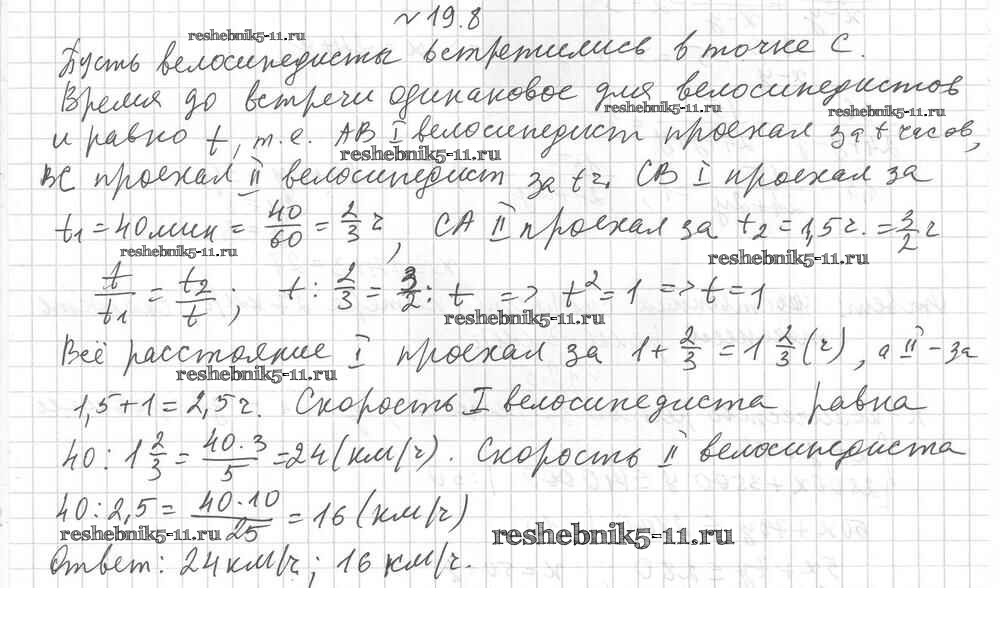 № 19.8
reshebnik5-11.ru
Пусть велосипедисты встретились в точке С.
Время до встречи одинаковое для велосипедистов
reshebnik5-11.ru
reshebnik5-11.ru
и равно t, т.е. АВ I велосипедист проехал за t часов,
reshebnik5-11.ru
ВС проехал II велосипедист за t ч. СВ I проехал за
t₁ = 40 мин = 40/60 = 2/3 ч, СА II проехал за t₂ = 1,5 ч. = 3/2 ч
reshebnik5-11.ru
reshebnik5-11.ru
t/t₁ = t₂/t; t : 2/3 = 3/2 : t => t² = 1 => t = 1
reshebnik5-11.ru
Всё расстояние I проехал за 1 + 2/3 = 1 2/3 (ч), а II – за
reshebnik5-11.ru
1,5 + 1 = 2,5 ч. Скорость I велосипедиста равна
40 : 1 2/3 = 40·3/5 = 24 (км/ч). Скорость II велосипедиста
40 : 2,5 = 40·10/25 = 16 (км/ч)
reshebnik5-11.ru
reshebnik5-11.ru
Ответ: 24 км/ч; 16 км/ч.